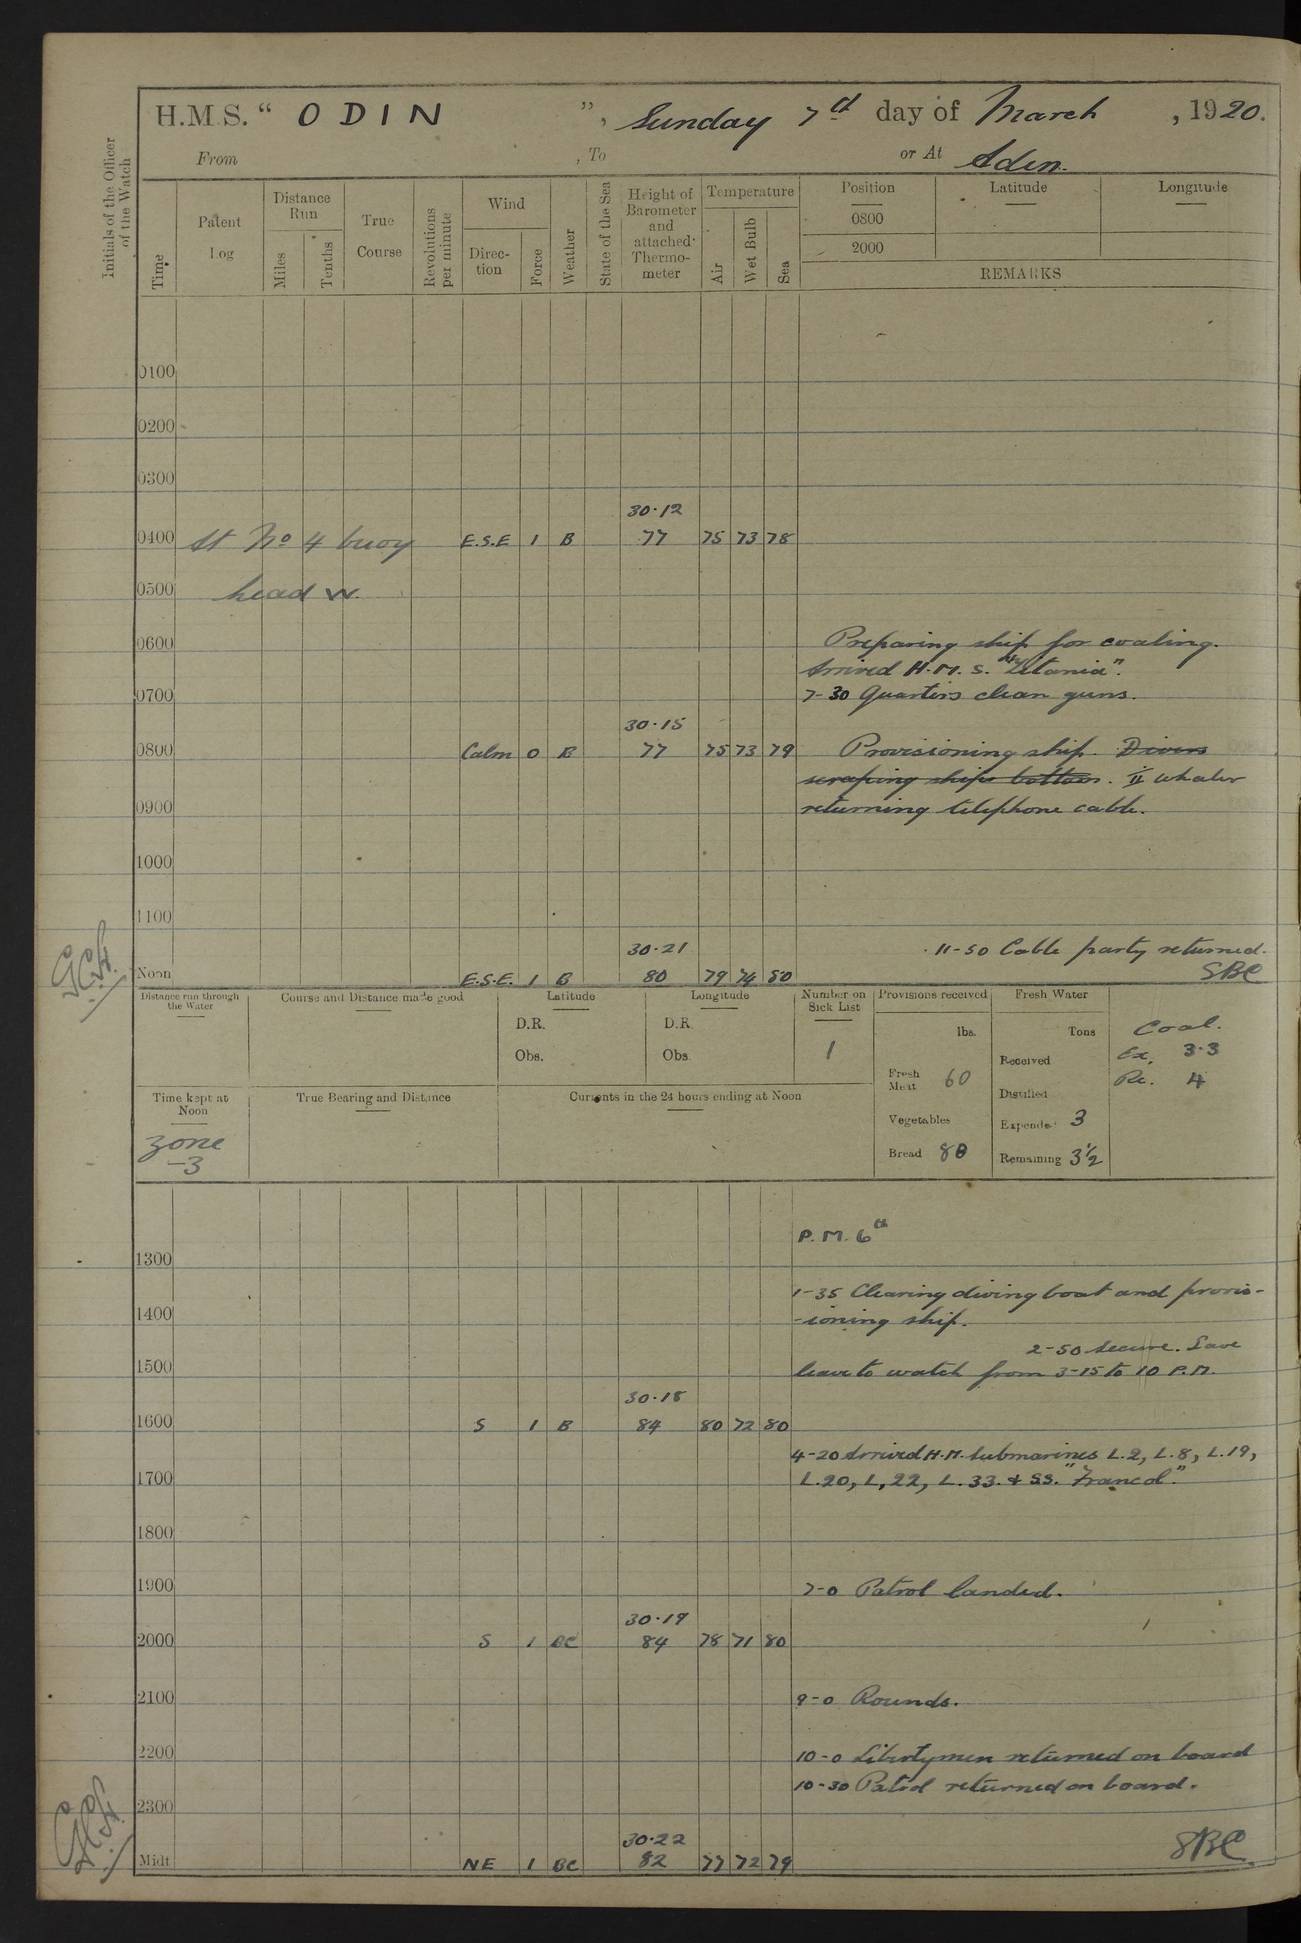 H.M.S. “ ODIN ”, Sunday 7th day of March , 1920.
From , To or At Aden.
Initials of the Officer of the Watch
Time
Patent Log
Distance Run
Miles
Tenths
True Course
Revolutions per minute
Wind
Direc-tion
Force
Weather
State of the Sea
Height of Barometer and attached Thermo-meter
Temperature
Air
Wet Bulb
Sea
Position
Latitude
Longitude
0800
2000
REMARKS
0100
0200
0300
30·12
0400 At No 4 buoy E.S.E 1 B 77 75 73 78
0500 head W.
0600 Preparing ship for coaling.
Arrived H.M.S. "Titania".
0700 7-30 Quarters clean guns.
30·15
0800 Calm 0 B 77 75 73 79 Provisioning ship. Divers
scraping ships bottom. II whaler
0900 returning telephone cable.
1000
1100
30·21 11-50 Cable party returned.
Noon E.S.E. 1 B 80 79 74 80 SBC
Distance run through the Water
Course and Distance made good
Latitude
D.R.
Obs.
Longitude
D.R.
Obs
Number on Sick List
1
Provisions received
lbs.
Fresh Meat 60
Vegetables
Bread 80
Fresh Water
Tons
Received
Distilled
Expended 3
Remaining 3½
Coal.
Ex. 3·3
Re. 4
Time kept at Noon
zone
-3
True Bearing and Distance
Currents in the 24 hours ending at Noon
P.M. 6th
1300
1-35 Clearing diving boat and provis-
1400 -ioning ship.
2-50 Secure. Gave
1500 leave to watch from 3-15 to 10 P.M.
30·18
1600 S 1 B 84 80 72 80
4-20 Arrived H.M. Submarines L.2, L.8, L.19,
1700 L.20, L.22, L.33. & SS. "Francol".
1800
1900 7-0 Patrol landed.
30·19
2000 S 1 BC 84 78 71 80
2100 9-0 Rounds.
2200 10-0 Libertymen returned on board
10-30 Patrol returned on board.
2300
30·22
Midt NE 1 BC 82 77 72 79 SBC.